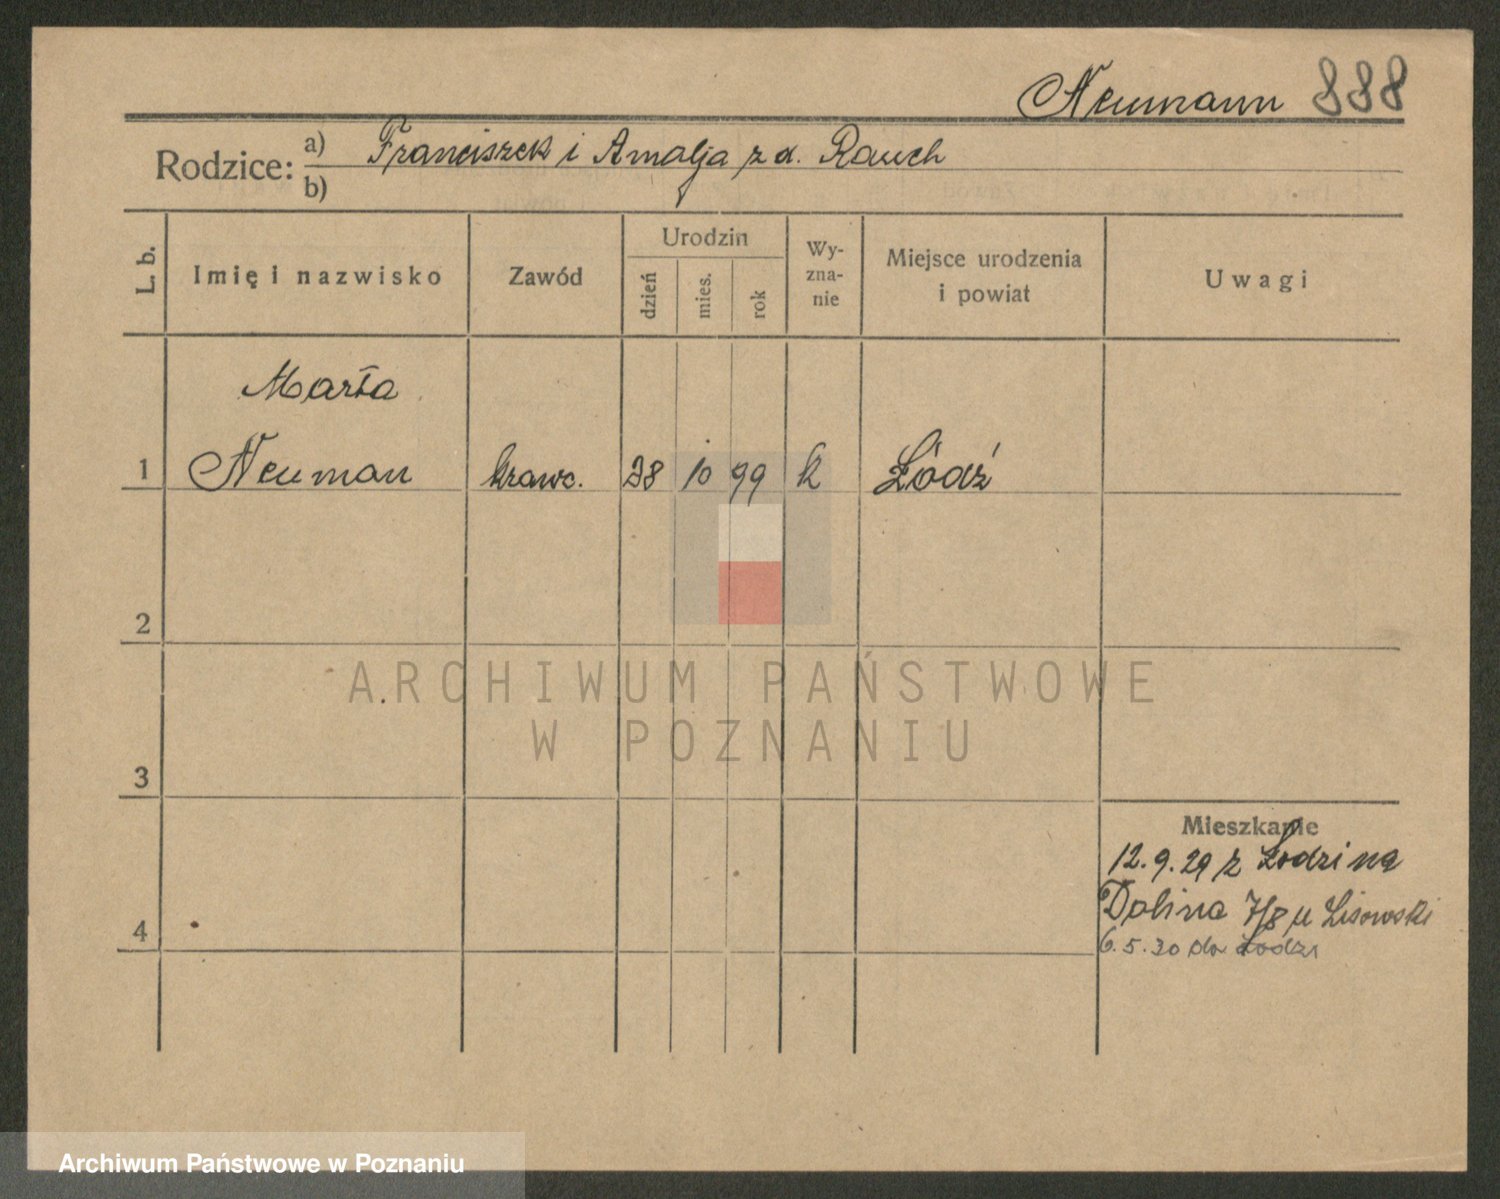 Neumann 888
Rodzice: a) Franciszek i Amalja z d. Rauch
b)
L. b.
Imię i nazwisko
Zawód
Urodzin
dzień
mies.
rok
Wy-
zna-
nie
Miejsce urodzenia
i powiat
Uwagi
Marta
1 Neuman krawc. 28 10 99 k Łódź
2
ARCHIWUM PAŃSTWOWE
W POZNANIU
3
Mieszkanie
12.9.29 z Łodzi na
Dolina 7/8 u Lisowski
4 6.5.30 do Łodzi
Archiwum Państwowe w Poznaniu